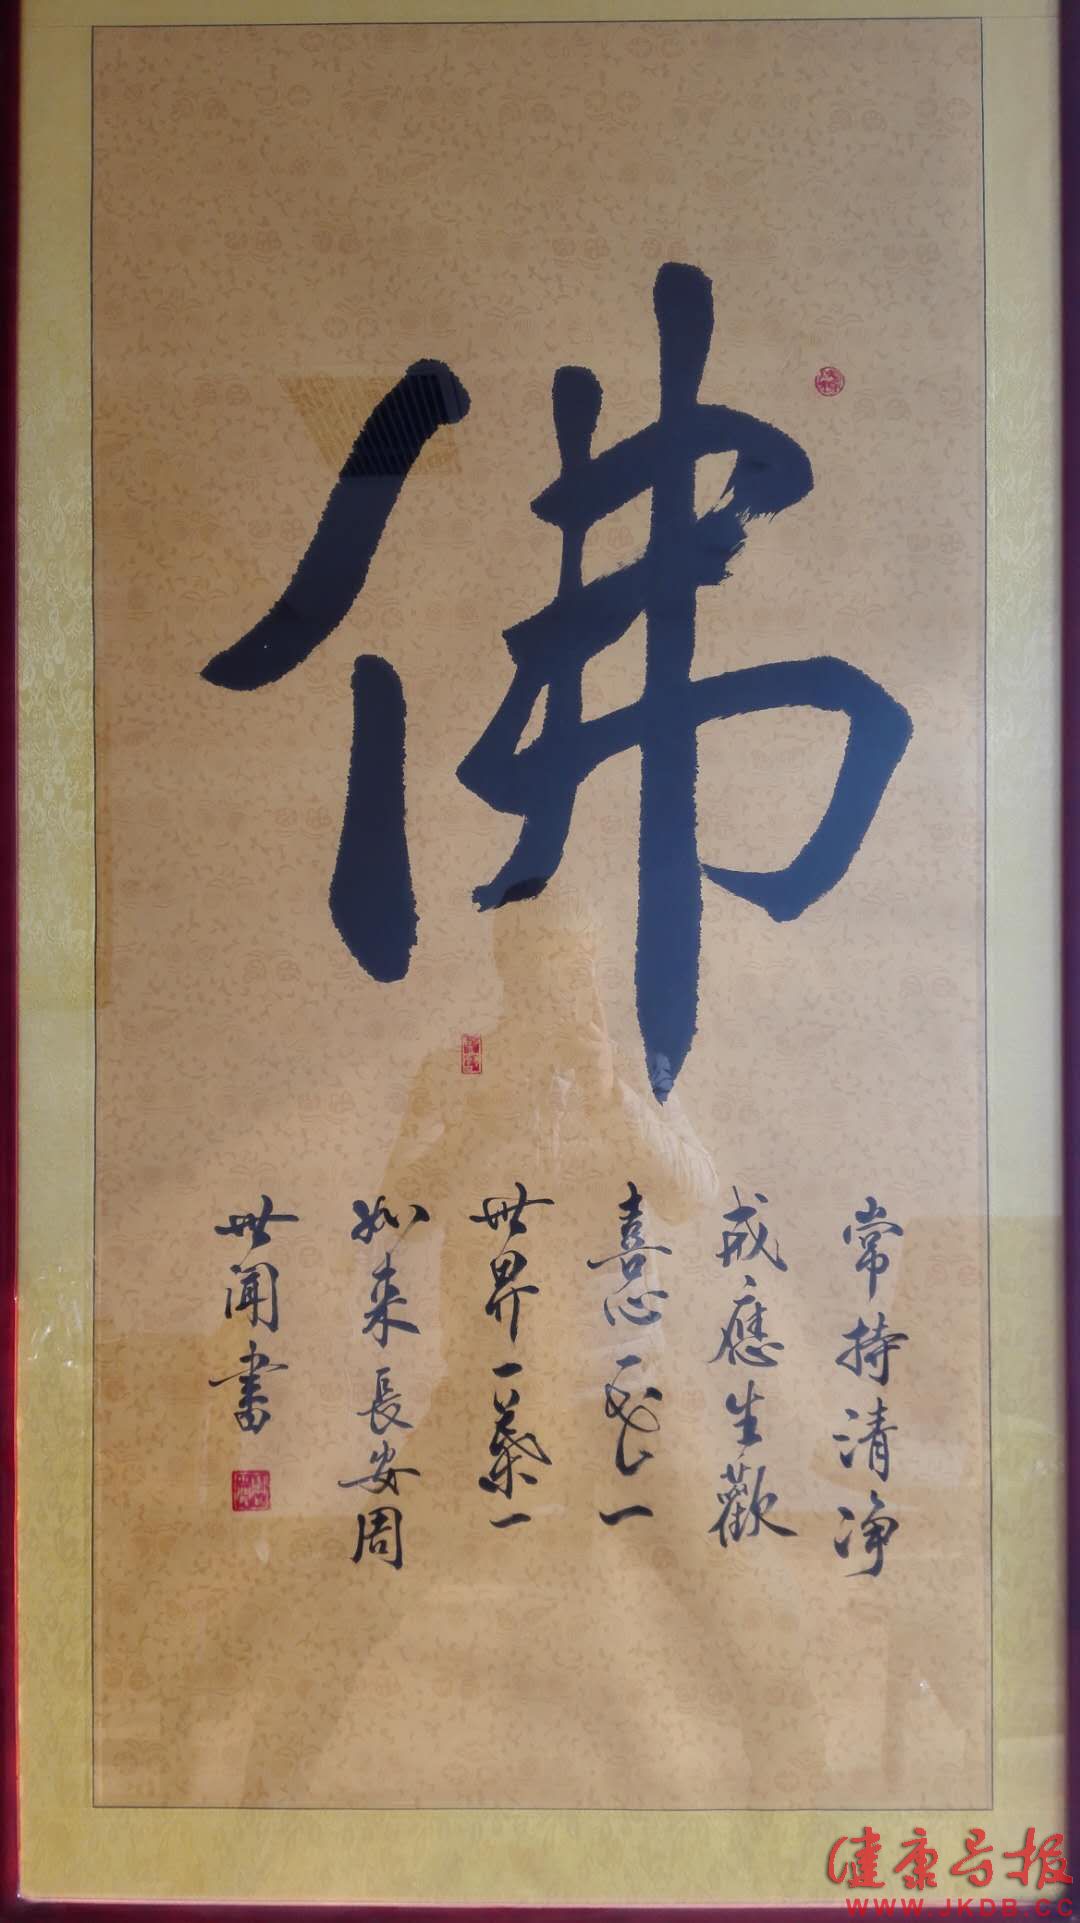 佛
常持清净
戒應生歡
喜心一花一
世界一葉一
如来長安周
世闻書
健康号报
WWW.JKDB.CC